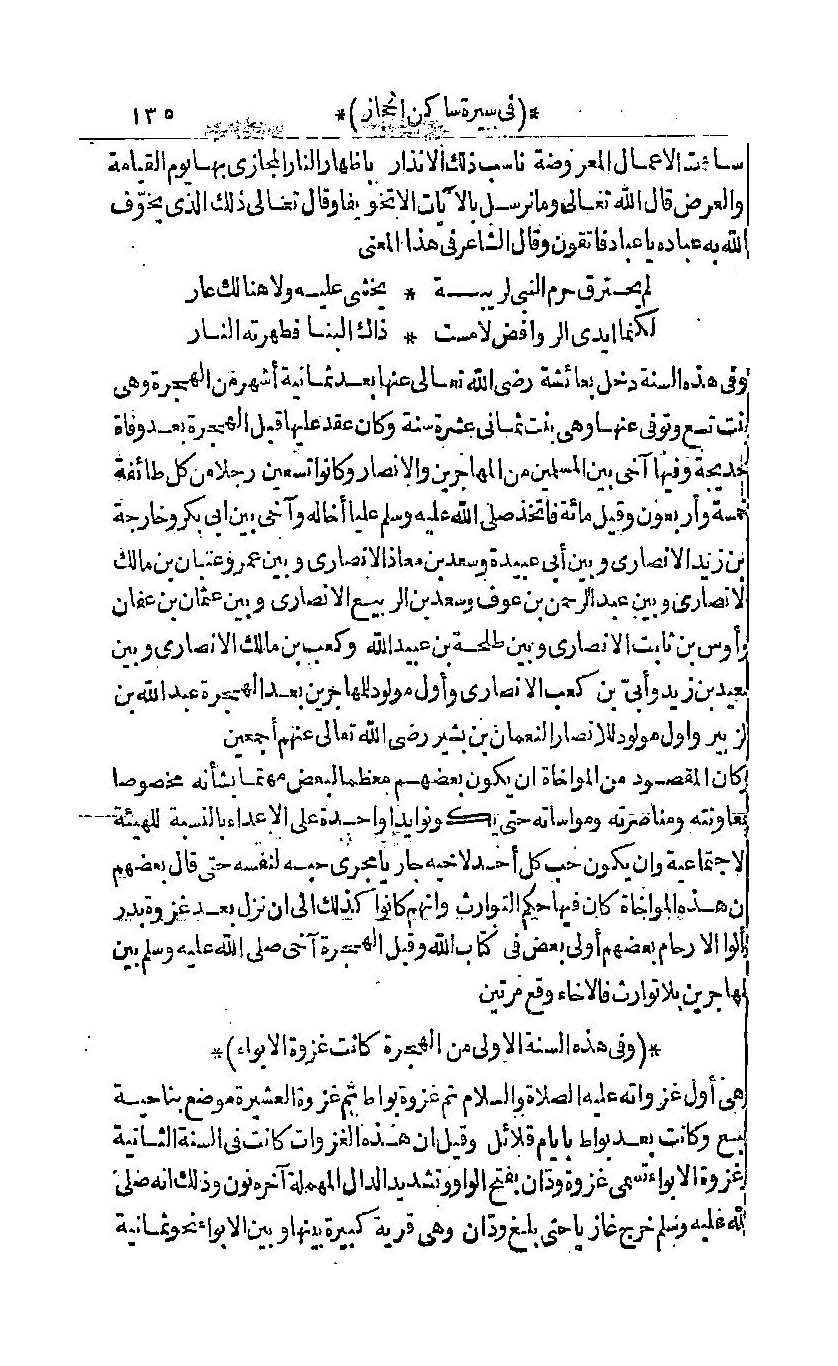 *(فى سيرة ساكن الحجاز)* ١٣٥
ساءت الاعمال المعروضة ناسب ذلك الانذار باظهار النار المجازى بها يوم القيامة
والعرض قال الله تعالى وما نرسل بالآيات الا تخويفا وقال تعالى ذلك الذى يخوّف
الله به عباده ياعباد فاتقون وقال الشاعر فى هذا المعنى
لم يحترق حرم النبى لريبة * يخشى عليه ولا هنالك عار
لكنما ايدى الروافض لامست * ذاك البنا فطهرته النار
وفى هذه السنة دخل بعائشة رضى الله تعالى عنها بعد ثمانية أشهر من الهجرة وهى
بنت تسع وتوفى عنها وهى بنت ثمانى عشرة سنة وكان عقد عليها قبل الهجرة بعد وفاة
خديجة وفيها آخى بين المسلمين من المهاجرين والانصار وكانوا تسعين رجلا من كل طائفة
خمسة وأربعون وقيل مائة فاتخذ صلى الله عليه وسلم عليا أخاله وآخى بين ابى بكر وخارجة
بن زيد الانصارى وبين أبى عبيدة وسعد بن معاذ الانصارى وبين عمر وعتبان بن مالك
الانصارى وبين عبد الرحمن بن عوف وسعد بن الربيع الانصارى وبين عثمان بن عفان
وأوس بن ثابت الانصارى وبين طلحة بن عبيد الله وكعب بن مالك الانصارى وبين
سعيد بن زيد وأبىّ بن كعب الانصارى وأول مولود للمهاجرين بعد الهجرة عبد الله بن
الزبير واول مولود للانصار النعمان بن بشير رضى الله تعالى عنهم أجمعين
وكان المقصود من المواخاة ان يكون بعضهم معظما لبعض مهتما بشأنه مخصوصا
بمعاونته ومناصرته ومواساته حتى يكونوا يدا واحدة على الاعداء بالنسبة للهيئة
الاجتماعية وان يكون حب كل أحد لاخيه جاريا مجرى حبه لنفسه حتى قال بعضهم
ان هذه المواخاة كان فيها حكم التوارث وانهم كانوا كذلك الى ان نزل بعد غزوة بدر
وألوا الارحام بعضهم أولى ببعض فى كتاب الله وقبل الهجرة آخى صلى الله عليه وسلم بين
المهاجرين بلا توارث فالاخاء وقع مرتين
*(وفى هذه السنة الاولى من الهجرة كانت غزوة الابواء)*
وهى أول غزواته عليه الصلاة والسلام ثم غزوة بواط ثم غزوة العشيرة موضع بناحية
ينبع وكانت بعد بواط بايام قلائل وقيل ان هذه الغزوات كانت فى السنة الثانية
وغزوة الابواء تسمى غزوة ودّان بفتح الواو وتشديد الدال المهملة آخره نون وذلك انه صلى
الله عليه وسلم خرج غازيا حتى بلغ ودّان وهى قرية كبيرة بينها وبين الابواء نحو ثمانية